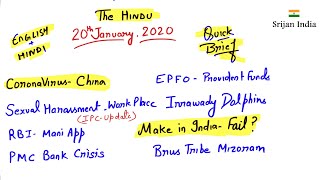 The HINDU
Srijan India
20th January, 2020
ENGLISH + HINDI
Quick Brief
CoronaVirus - China
EPFO - Provident Funds
Sexual Harassment - Work Place
(IPC-Update)
Irrawady Dolphins
RBI - Mani App
Make in India - Fail?
PMC Bank Crisis
Brus Tribe Mizoram